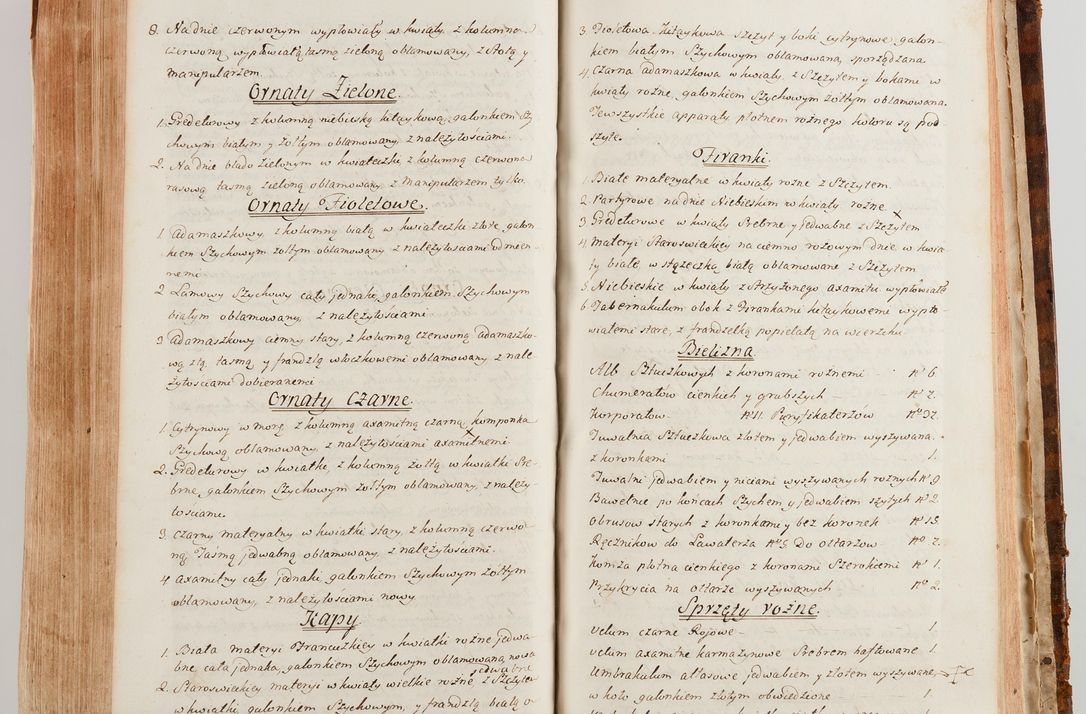 8. Na dnie czerwonym wypłowiały w kwiaty, z kolumną
czerwoną, wypłowiałą tasmą zieloną oblamowany, z Stołą y
manipularzem.
Ornaty Zielone.
1. Gredeturowy z kolumną niebieską kitaykową, galonkiem Szy-
chowym białym y żółtym oblamowany, z należytościami.
2. Na dnie blado zielonym w kwiateczki, z kolumną czerwono
rasową tasmą zieloną oblamowany z Manipularzem tylko.
Ornaty Fioletowe.
1. Adamaszkowy, z kolumną białą w kwiateczki złote, galon-
kiem Szychowym żołtym oblamowany z należytościami odmien-
nemi.
2. Lamowy Szychowy cały jednaki, galonkiem Szychowym
białym oblamowany, z należytosciami.
3. Adamaszkowy ciemny stary, z kolumną czerwoną Adamaszko-
wą złą, tasmą, y frandzlą włoczkowemi oblamowany z nale-
żytosciami dobieranemi
Ornaty Czarne.
1. Cytrynowy w morę, z kolumną axamitną czarną komponka
Szychową oblamowany, z należytościami axamitnemi.
2. Gredeturowy w kwiatki, z kolumną żołtą w kwiatki Sre-
brne, galonkiem Szychowym żołtym oblamowany, z należy-
tosciami.
3. Czarny materyalny w kwiatki stary, z kolumną czerwo-
ną, Tasmą jedwabną oblamowany, z należytosciami.
4 Axamitny cały jednaki, galonkiem Szychowym żołtym
oblamowany, z należytościami nowy
Kapy.
1. Biała materyi Francuzkiey w kwiatki rożne jedwa-
bne, cała jednaka, galonkiem Szychowym oblamowana, nowa
jedwabne
2. Staroswieckiey materyi w kwiaty wielkie rożne z Szczytem
w kwiatki, galonkiem Szychowym, y frandzlą białą o-
3 Fioletowa Kitaykowa szczyt y boki cytrynowe, galon-
kiem białym Szychowym oblamowana, sporządzana
4 Czarna adamaszkowa w kwiaty, z Szczytem y bokami w
kwiaty rożne, galonkiem Szychowym żołtym oblamowana.
Te wszystkie apparaty płotnem rożnego koloru są pod
szyte.
Firanki.
1. Białe materyalne w kwiaty rożne z Szczytem.
2 Partyrowe na dnie Niebieskim w kwiaty rożne
3 Gredeturowe w kwiaty Srebrne y jedwabne z Szczytem
4 materyi Staroswieckiey na ciemno rożowym dnie w kwia-
ty białe, w stążeczką białą oblamowane z Szczytem
5 Niebieskie w kwiaty z strzyżonego axamitu wypłowiałe
6 Tabernakulum obok z Firankami kitaykowemi wypło-
wiałemi stare, z frandzelką popielatą na wierzchu
Bielizna.
Alb Sztuczkowych z koronami rożnemi - N° 6
Chumerałow cienkich y grubszych - N° 7.
Korporałow - N° 11. Puryfikaterzow N° 37.
Tuwalnia Sztuczkowa złotem y jedwabiem wyszywana.
z koronkami 1.
Tuwalni jedwabiem y niciami wyszywanych rożnych N° 9
Bawełnie po końcach Szychem y jedwabiem szytych N° 2
Obrusow starych z koronkami y bez koronek N° 15.
Ręcznikow do Lawaterza N° 5 Do ołtarzow N° 7.
Komża płotna cienkiego z koronami Szerokiemi N° 1.
Przykrycia na ołtarze wyszywanych N° 2.
Sprzęty rożne.
Velum czarne Rojowe - 1.
Velum axamitne karmazynowe Srebrem haftowane 1.
Umbrakulum atłasowe jedwabiem y złotem wyszywane,
w koło galonkiem złotym obwiedzione - 1.